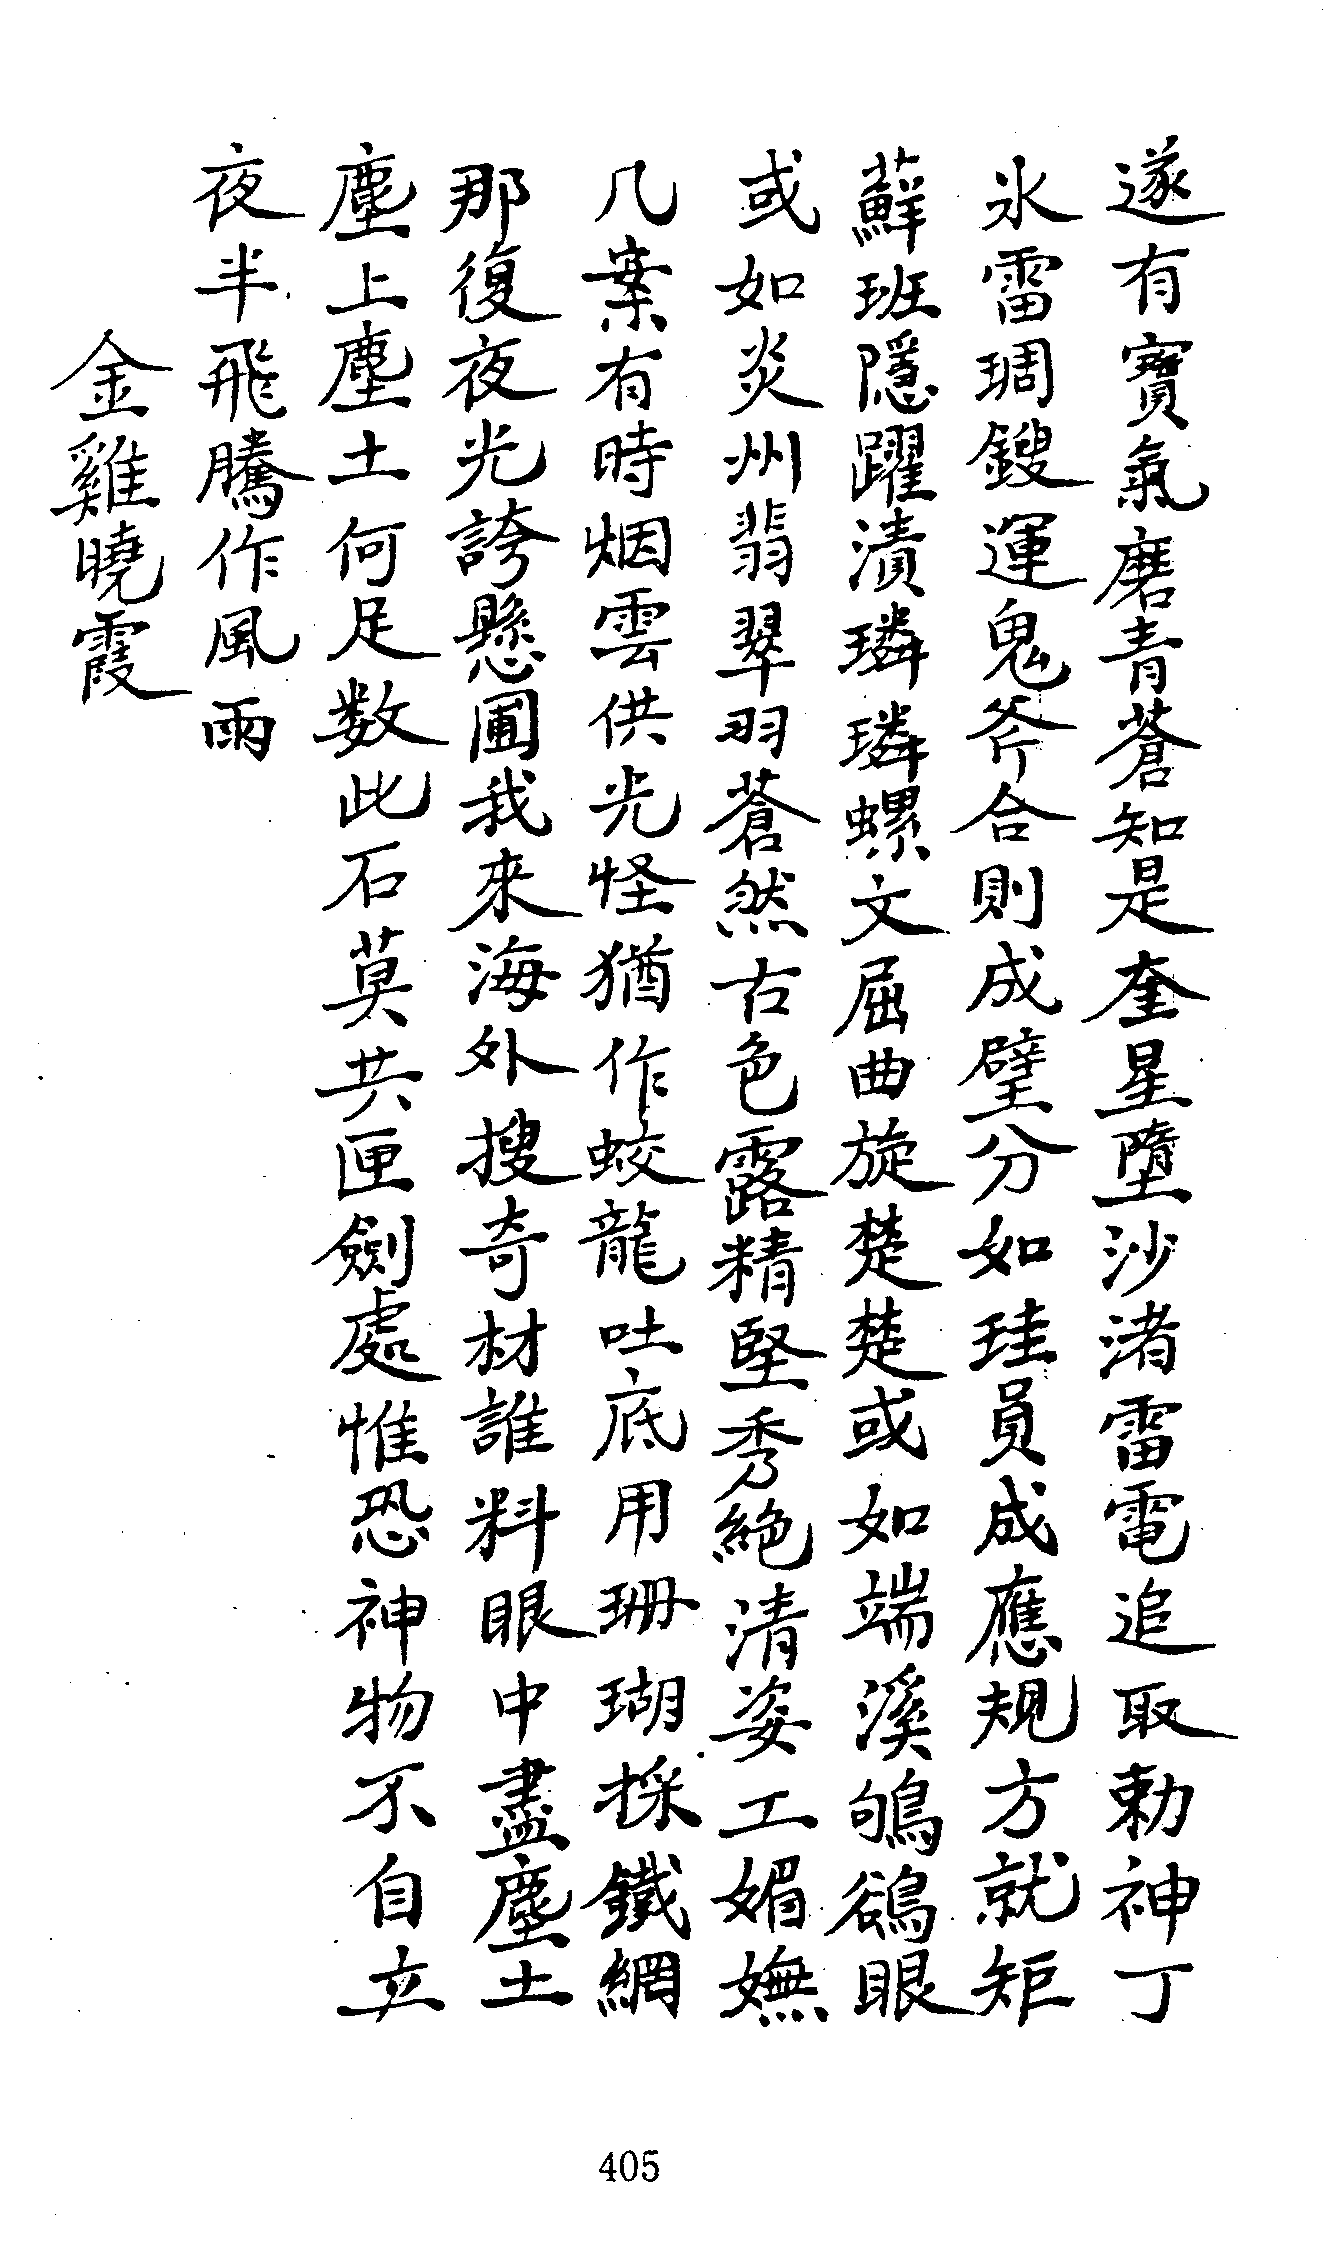 遂有寶氣磨青蒼知是奎星墮沙渚雷電追取勅神丁
氷雷琱鎪運鬼斧合則成璧分如珪員成應規方就矩
蘚班隱躍漬璘璘螺文屈曲旋楚楚或如端溪鴝鵒眼
或如炎州翡翠羽蒼然古色露精堅秀絶清姿工媚嫵
几案有時烟雲供光怪猶作蛟龍吐底用珊瑚採鐵網
那復夜光誇懸圃我來海外搜奇材誰料眼中盡塵土
塵上塵土何足数此石莫共匣劍處惟恐神物不自立
夜半飛騰作風雨
金雞曉霞
405